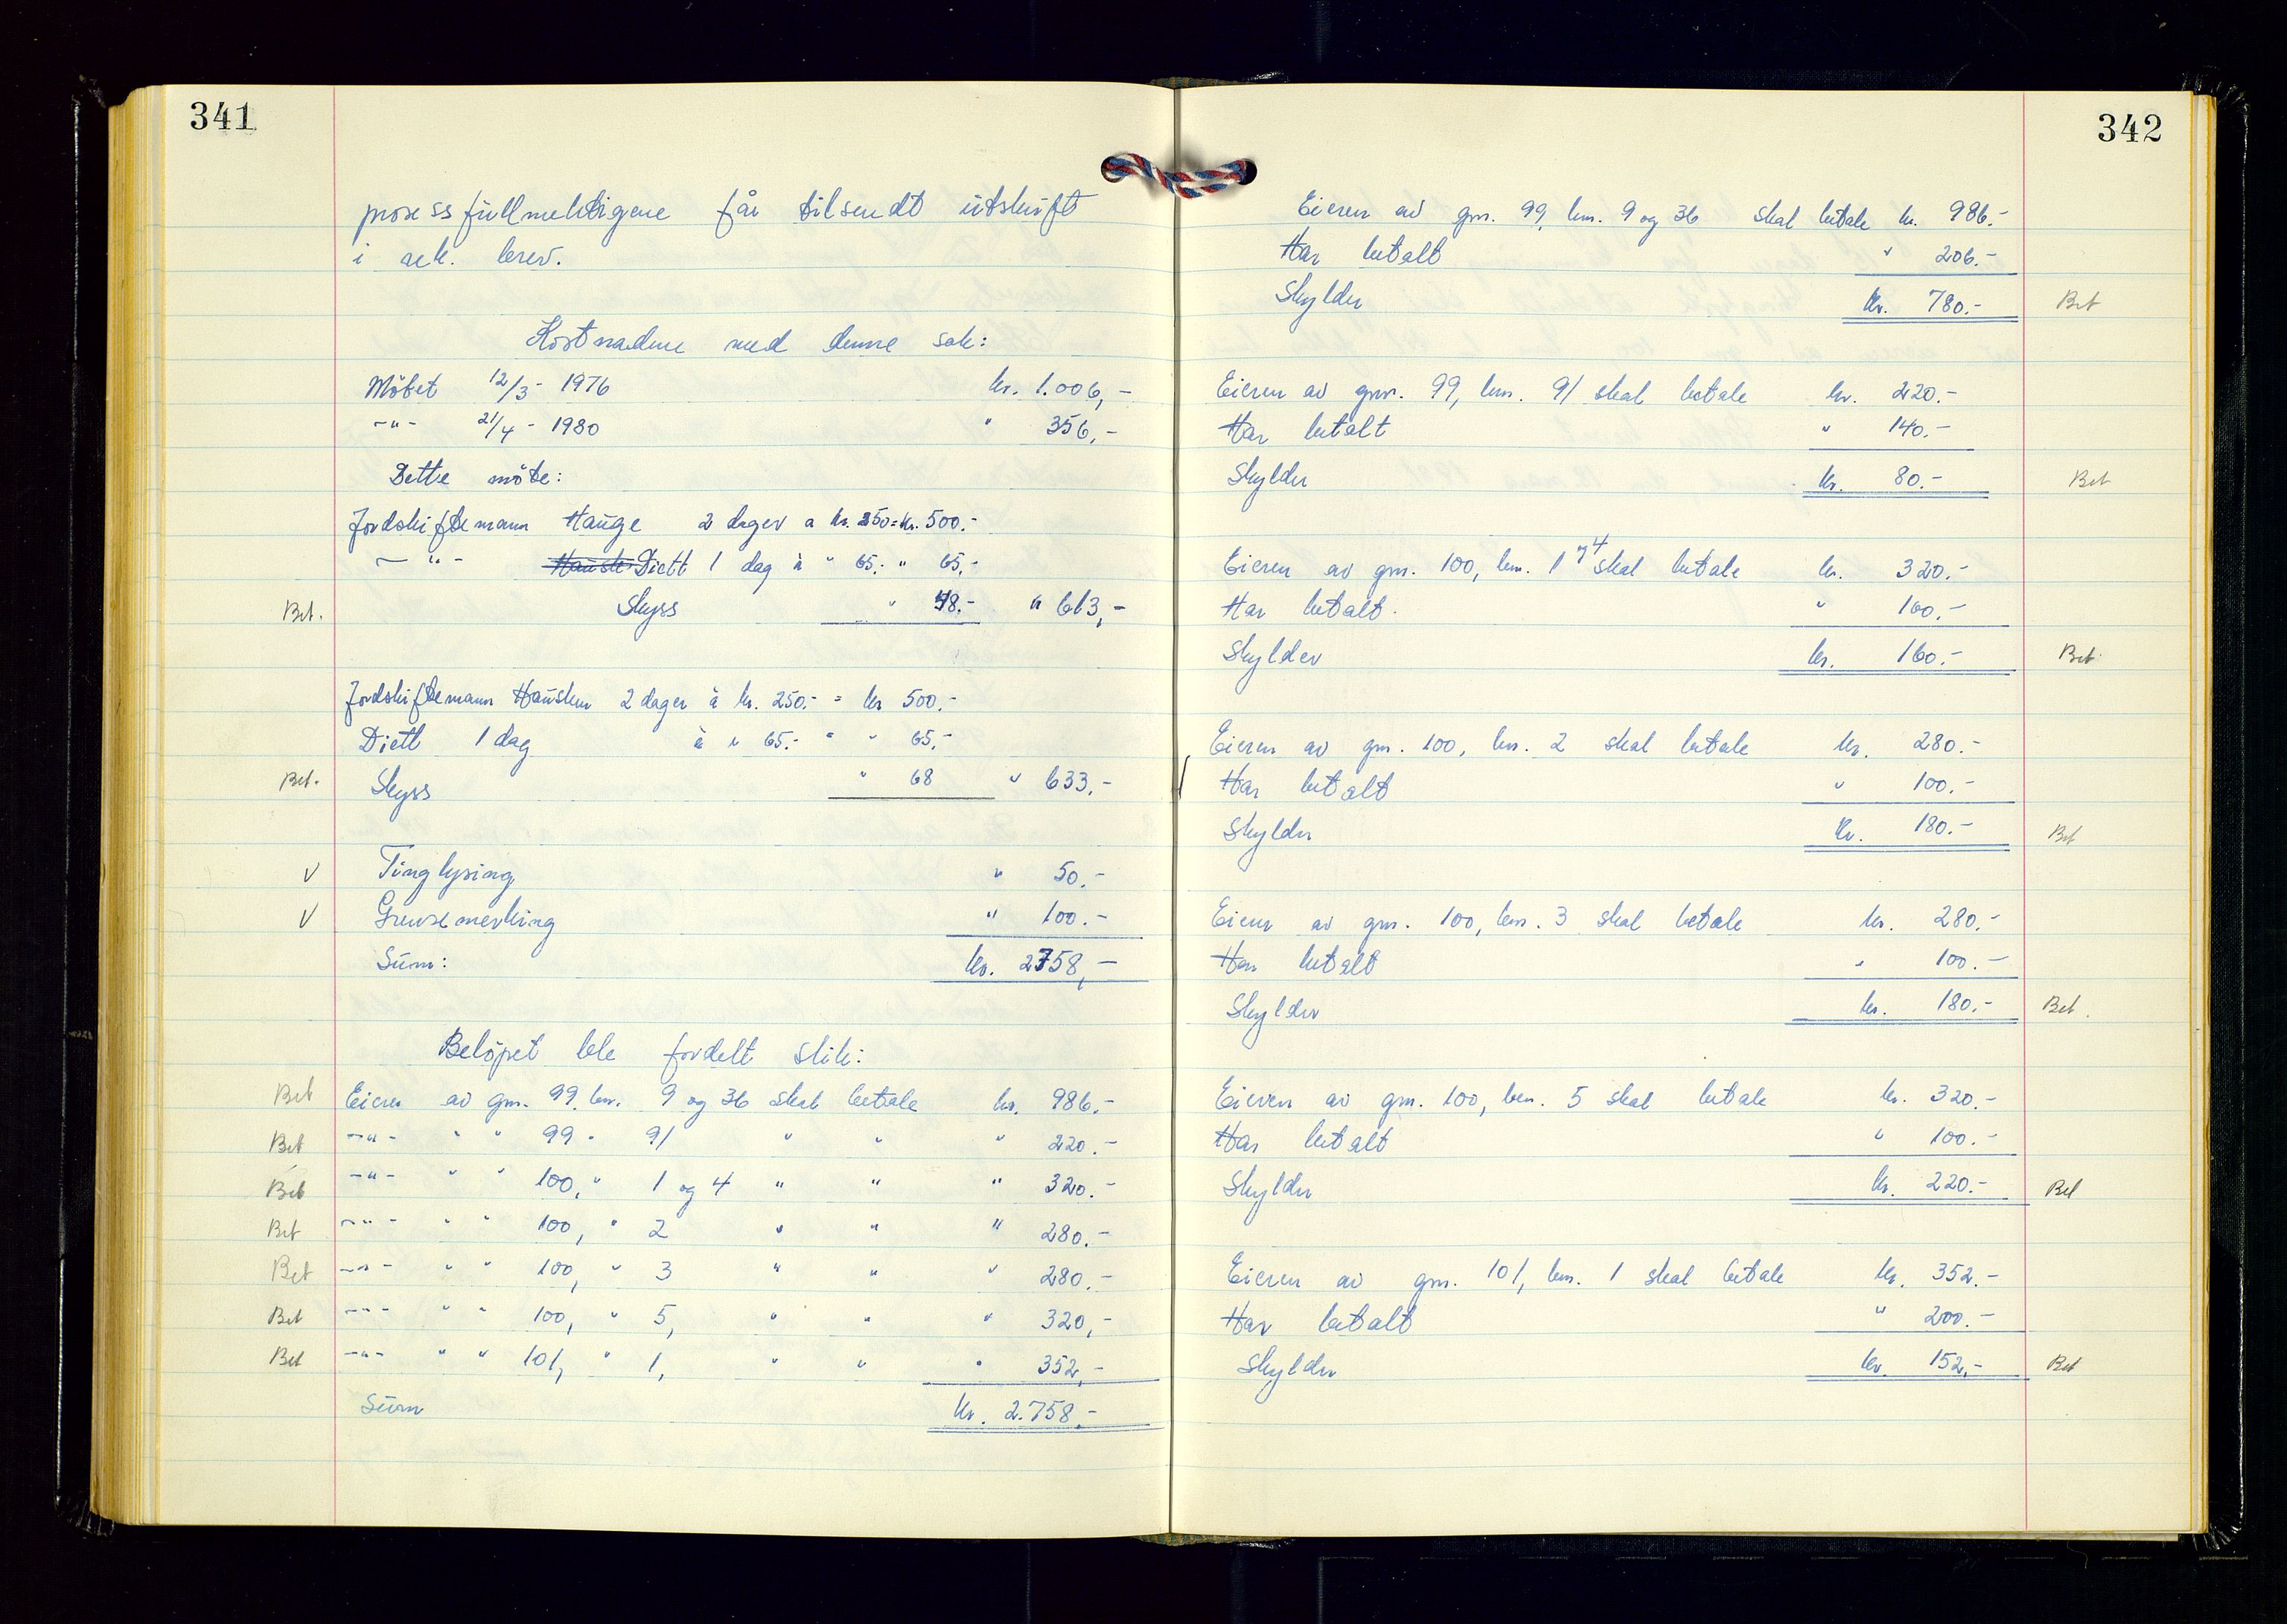 341
prosessfullmektigene får tilsendt utskrift
i rek. brev.
Kostnadene med denne sak:
Møtet 12/3 - 1976 kr. 1.006,-
-"- 21/4 - 1980 " 356,-
Dette møte:
Jordskiftemann Hauge 2 dager a kr. 250 = kr. 500.-
-"- Diett 1 dag à " 65.- " 65.-
Bet. Skyss " 48.- " 613,-
Jordskiftemann Hausken 2 dager à kr. 250.- = kr 500.-
Diett 1 dag à " 65.- = " 65.-
Bet. Skyss " 68 " 633.-
V Tinglysing " 50.-
V Grensemerking " 100.-
Sum: kr. 2758,-
Beløpet ble fordelt slik:
Bet Eieren av gnr. 99 bnr. 9 og 36 skal betale kr. 986.-
Bet -"- " " 99 " 91 " " " 220.-
Bet -"- " " 100, " 1 og 4 " " " 320.-
Bet -"- " " 100, " 2 " " " 280.-
Bet -"- " " 100, " 3 " " " 280.-
Bet -"- " " 100, " 5, " " " 320,-
Bet -"- " " 101, " 1, " " " 352,-
Sum kr. 2.758.-
342
Eieren av gnr. 99, bnr. 9 og 36 skal betale kr. 986.-
Har betalt " 206.-
Skylder kr. 780.- Bet
Eieren av gnr. 99, bnr. 91 skal betale kr. 220.-
Har betalt " 140.-
Skylder kr. 80.- Bet
Eieren av gnr. 100, bnr. 1 og 4 skal betale kr. 320.-
Har betalt. " 160.-
Skylder kr. 160.- Bet
Eieren av gnr. 100, bnr. 2 skal betale kr. 280.-
Har betalt " 100.-
Skylder kr. 180.- Bet
Eieren av gnr. 100, bnr. 3 skal betale kr. 280.-
Har betalt " 100.-
Skylder kr. 180.- Bet.
Eieren av gnr. 100, bnr. 5 skal betale kr. 320.-
Har betalt " 100.-
Skylder kr. 220.- Bet
Eieren av gnr. 101, bnr. 1 skal betale kr. 352.-
Har betalt " 200.-
Skylder kr. 152,- Bet